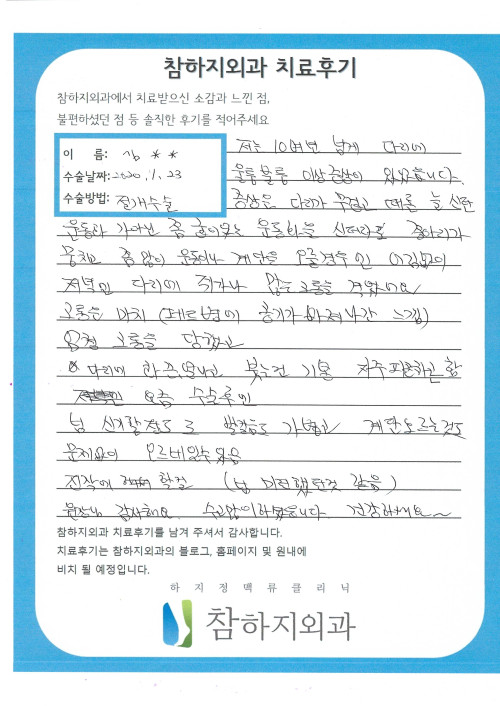 참하지외과 치료후기
참하지외과에서 치료받으신 소감과 느낀 점,
불편하셨던 점 등 솔직한 후기를 적어주세요
이 름: **
수술날짜: 2020. 1. 23
수술방법: 절개수술
저는 10여년 넘게 다리에
울퉁불퉁 이상증상이 있었습니다.
증상은 다리가 무겁고 때론 늘 신던
운동화 굽이있는 운동화를 신더라도 종아리가
뭉치고 운동이나 계단을 오를경우엔
저녁엔 다리에 쥐가나 많은 고통을 겪었네요
고통은 마치 공기가 빠져나간 느낌)
엄청 고통을 당했고
다리에 붓는건 기본 자주 피곤하곤 함
요즘 수술후엔
넘 신기할정도로 발걸음도 가볍고 계단오르는것도
문제없이 오르내릴수있음
진작에 할걸 (넘 미련했던것 같음)
감사해요. 수고많이하셨습니다 건강하세요~
참하지외과 치료후기를 남겨 주셔서 감사합니다.
치료후기는 참하지외과의 블로그, 홈페이지 및 원내에
비치 될 예정입니다.
하지정맥류클리닉
참하지외과